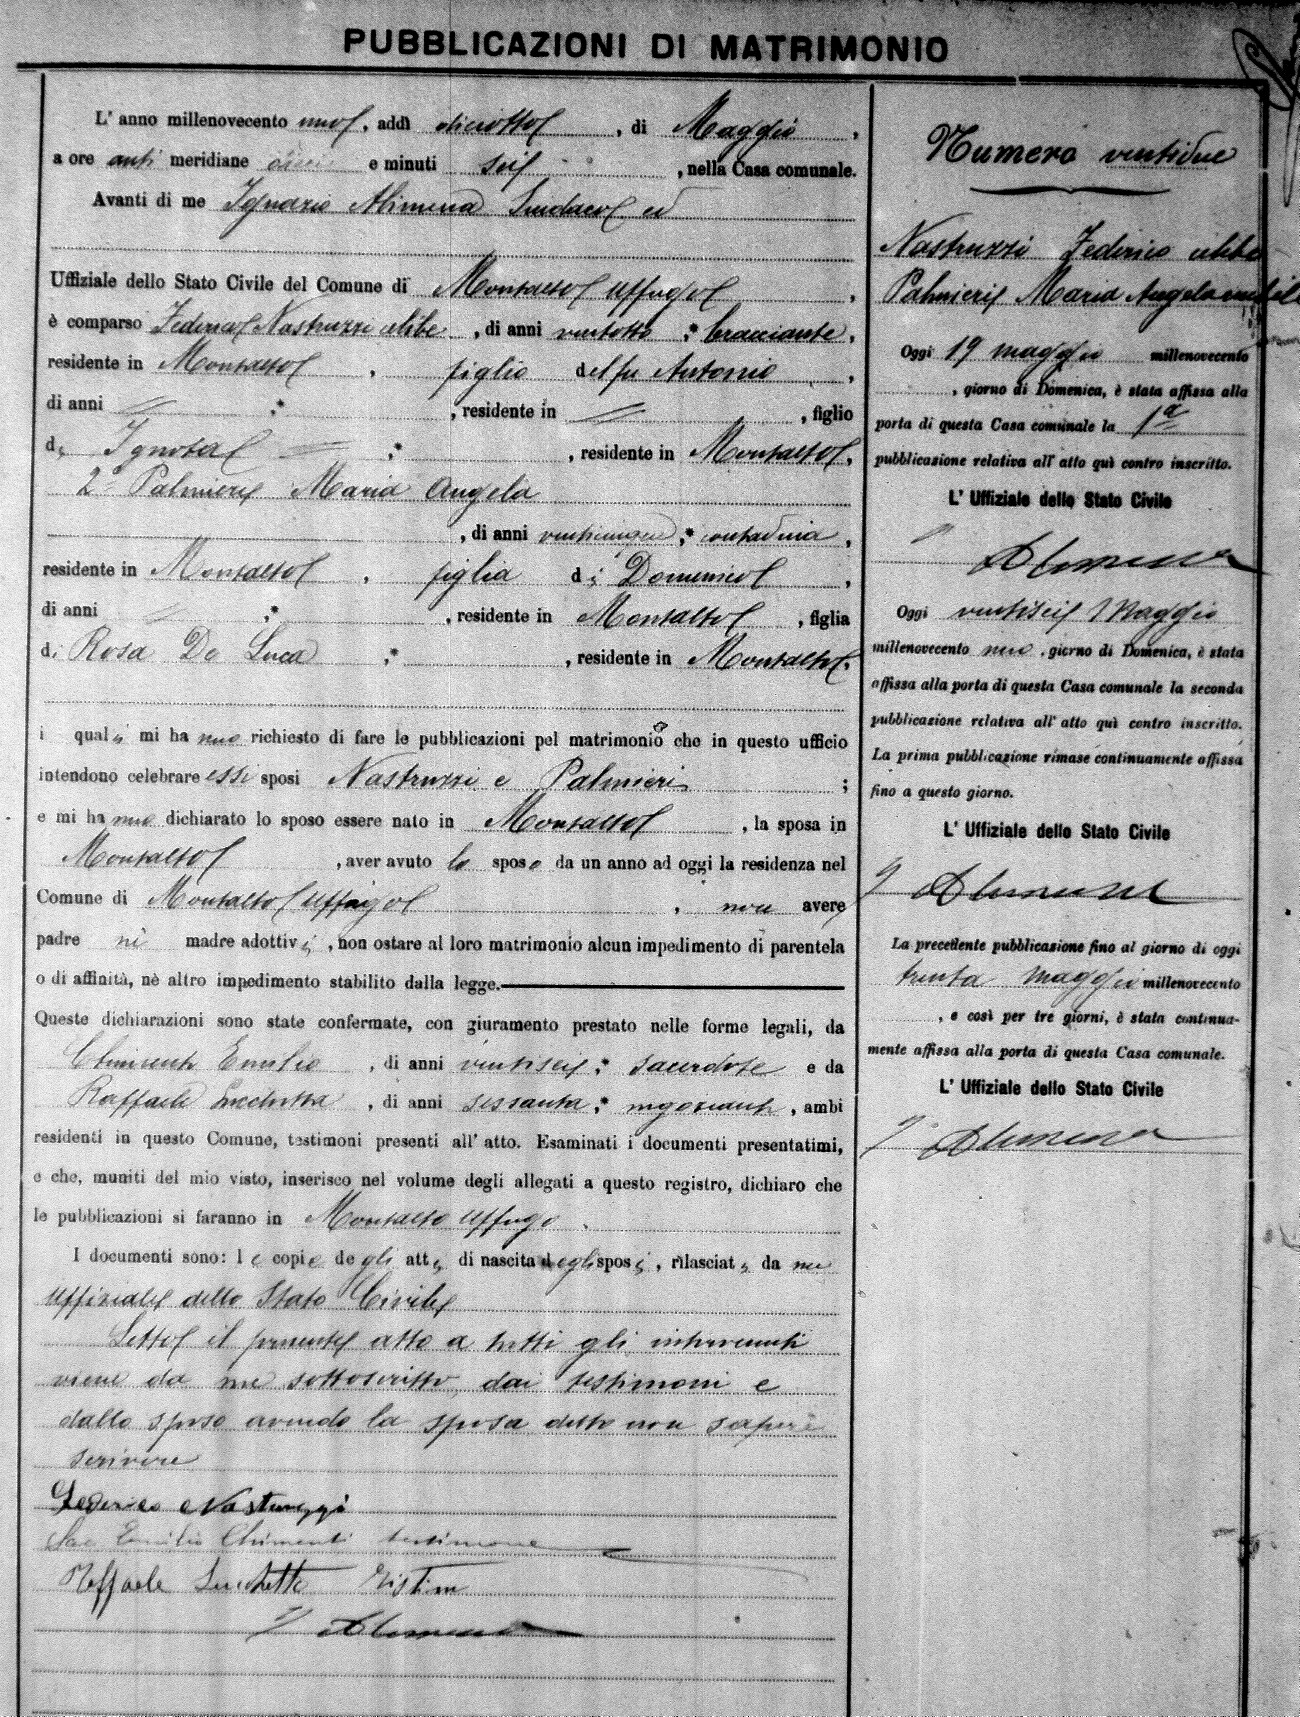 PUBBLICAZIONI DI MATRIMONIO
L' anno millenovecento uno, addì diciotto, di Maggio,
a ore anti meridiane dieci e minuti sei, nella Casa comunale.
Avanti di me Ignazio Alimena Sindaco ed
Uffiziale dello Stato Civile del Comune di Montalto Uffugo,
è comparso Federico Nastruzzi celibe, di anni ventotto, bracciante,
residente in Montalto, figlio del fu Antonio,
di anni =, residente in =, figlio
di Ignota =, residente in Montalto,
2º Palmieri Maria Angela
, di anni venticinque, contadina,
residente in Montalto, figlia di Domenico,
di anni =, residente in Montalto, figlia
di Rosa De Luca, residente in Montalto,
i quali mi hanno richiesto di fare le pubblicazioni pel matrimonio che in questo ufficio
intendono celebrare essi sposi Nastruzzi e Palmieri ;
e mi hanno dichiarato lo sposo essere nato in Montalto, la sposa in
Montalto, aver avuto lo sposo da un anno ad oggi la residenza nel
Comune di Montalto Uffugo, non avere
padre nè madre adottivi, non ostare al loro matrimonio alcun impedimento di parentela
o di affinità, nè altro impedimento stabilito dalla legge.
Queste dichiarazioni sono state confermate, con giuramento prestato nelle forme legali, da
Chimenti Emilio, di anni ventisei, sacerdote e da
Raffaele Lucchetta, di anni sessanta, negoziante, ambi
residenti in questo Comune, testimoni presenti all' atto. Esaminati i documenti presentatimi,
e che, muniti del mio visto, inserisco nel volume degli allegati a questo registro, dichiaro che
le pubblicazioni si faranno in Montalto Uffugo.
I documenti sono: le copie degli atti di nascita degli sposi, rilasciati da me
Uffiziale dello Stato Civile
Letto il presente atto a tutti gli intervenuti
viene da me sottoscritto, dai testimoni e
dallo sposo avendo la sposa detto non sapere
scrivere
Federico Nastruzzi
Sac Emilio Chimenti testimone
Raffaele Lucchetta Tistim
I Alimena
Numero ventidue
Nastruzzi Federico celibe
Palmieri Maria Angela nubile
Oggi 19 maggio millenovecento
, giorno di Domenica, è stata affissa alla
porta di questa Casa comunale la 1ª
pubblicazione relativa all' atto quì contro inscritto.
L' Uffiziale dello Stato Civile
I Alimena
Oggi ventisei Maggio
millenovecento uno, giorno di Domenica, è stata
affissa alla porta di questa Casa comunale la seconda
pubblicazione relativa all' atto quì contro inscritto.
La prima pubblicazione rimase continuamente affissa
fino a questo giorno.
L' Uffiziale dello Stato Civile
I Alimena
La precedente pubblicazione fino al giorno di oggi
trenta maggio millenovecento
, e così per tre giorni, è stata continua-
mente affissa alla porta di questa Casa comunale.
L' Uffiziale dello Stato Civile
I Alimena